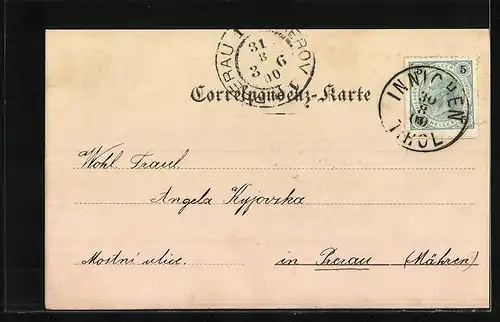 PRERAU 1 PŘEROV 1
31
8
3 6
00
5
INNICHEN
30
8
00
TIROL
Correspondenz-Karte
Wohl. Fraul.
Angela Kyjovska
Mostní ulice.
in Prerau (Mähren)